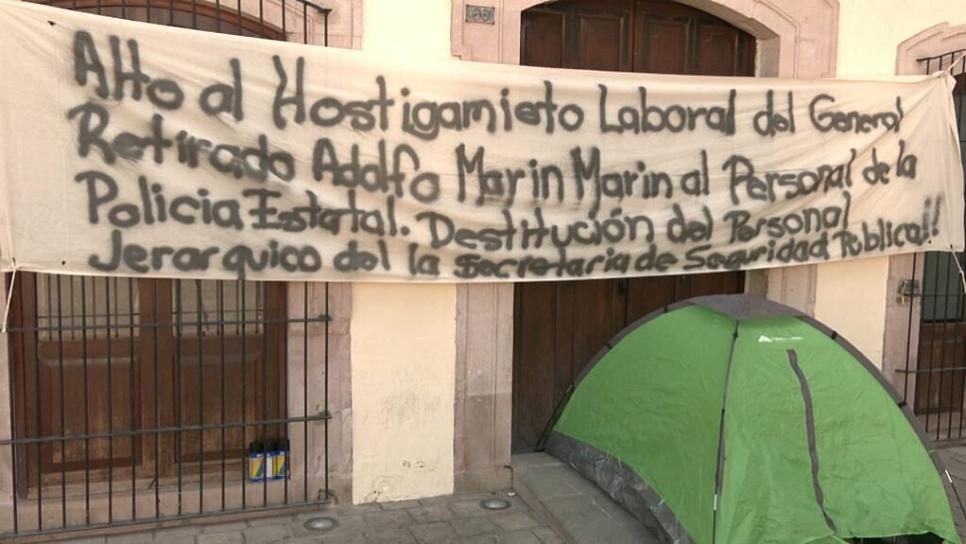 Alto al Hostigamieto Laboral del General
Retirado Adolfo Marin Marin al Personal de la
Policia Estatal. Destitución del Personal
Jerarquico del la secretaria de Seguridad Publica!!